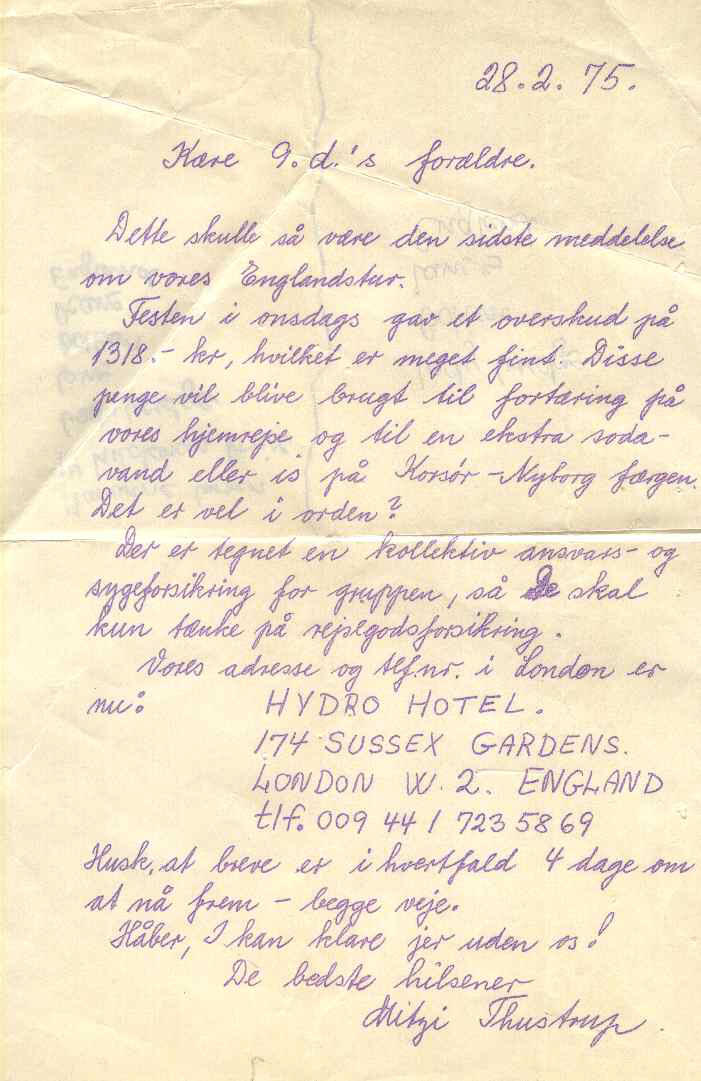 28.2.75.
Kære 9.d.'s forældre.
Dette skulle så være den sidste meddelelse
om vores Englandstur.
Festen i onsdags gav et overskud på
1318.- kr, hvilket er meget fint. Disse
penge vil blive brugt til fortæring på
vores hjemrejse og til en ekstra soda-
vand eller is på Korsør-Nyborg færgen.
Det er vel i orden?
Der er tegnet en kollektiv ansvars- og
sygeforsikring for gruppen, så De skal
kun tænke på rejsegodsforsikring.
Vores adresse og tlf.nr. i London er
nu: HYDRO HOTEL.
174 SUSSEX GARDENS.
LONDON W.2. ENGLAND
tlf. 009 44 1 723 5869
Husk, at breve er i hvertfald 4 dage om
at nå frem - begge veje.
Håber, I kan klare jer uden os!
De bedste hilsener
Mitzi Thustrup.